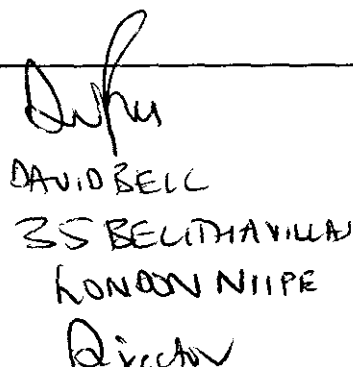 DAVID BELL
35 BELITHA VILLAS
LONDON N11PE
Director